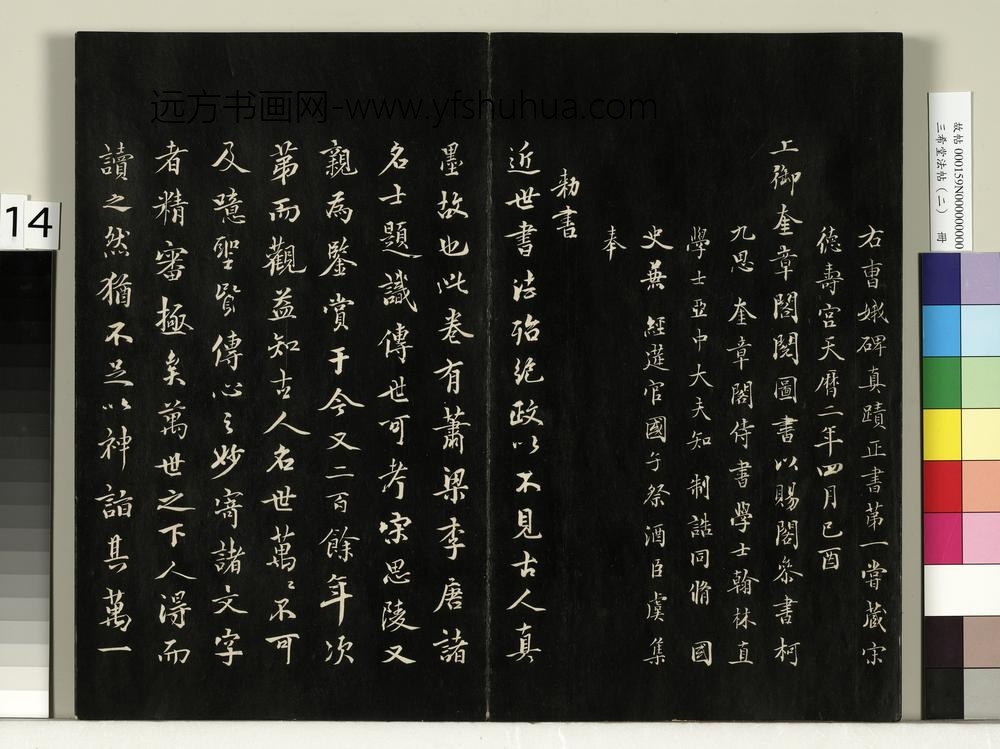 远方书画网-www.yfshuhua.com
右曹娥碑真蹟正书苐一嘗藏宗
德壽宫天曆二年四月己酉
上御奎章閣閱圖書以賜閣參書柯
九思奎章閣侍書學士翰林直
學士亞中大夫知制誥同脩國
史兼經筵官國子祭酒臣虞集
奉
勑書
近世書法殆絶政以不見古人真
墨故也此卷有蕭梁李唐諸
名士題識傳世可考宋思陵又
親為鑒賞于今又二百餘年次
苐而觀益知古人名世萬萬不可
及噫聖賢傳心之妙寄諸文字
者精審極矣萬世之下人得而
讀之然猶不足以神詣其萬一
故帖 000159N000000000
三希堂法帖（二） 冊
14